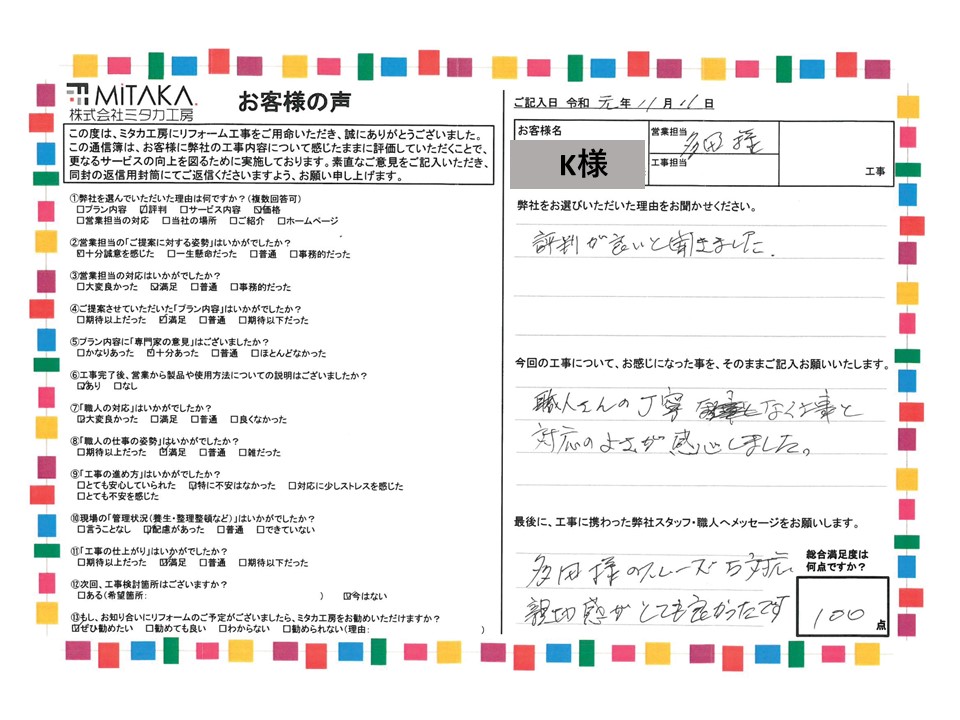 MiTAKA.
株式会社ミタカ工房
お客様の声
この度は、ミタカ工房にリフォーム工事をご用命いただき、誠にありがとうございました。
この通信簿は、お客様に弊社の工事内容について感じたままに評価していただくことで、
更なるサービスの向上を図るために実施しております。素直なご意見をご記入いただき、
同封の返信用封筒にてご返信くださいますよう、お願い申し上げます。
①弊社を選んでいただいた理由は何ですか？(複数回答可)
□プラン内容 ☑評判 □サービス内容 ☑価格
□営業担当の対応 □当社の場所 □ご紹介 □ホームページ
②営業担当の「ご提案に対する姿勢」はいかがでしたか？
☑十分誠意を感じた □一生懸命だった □普通 □事務的だった
③営業担当の対応はいかがでしたか？
□大変良かった ☑満足 □普通 □事務的だった
④ご提案させていただいた「プラン内容」はいかがでしたか？
□期待以上だった ☑満足 □普通 □期待以下だった
⑤プラン内容に「専門家の意見」はございましたか？
□かなりあった ☑十分あった □普通 □ほとんどなかった
⑥工事完了後、営業から製品や使用方法についての説明はございましたか？
☑あり □なし
⑦「職人の対応」はいかがでしたか？
☑大変良かった □満足 □普通 □良くなかった
⑧「職人の仕事の姿勢」はいかがでしたか？
□期待以上だった ☑満足 □普通 □雑だった
⑨「工事の進め方」はいかがでしたか？
□とても安心していられた ☑特に不安はなかった □対応に少しストレスを感じた
□とても不安を感じた
⑩現場の「管理状況(養生・整理整頓など)」はいかがでしたか？
□言うことなし ☑配慮があった □普通 □できていない
⑪「工事の仕上がり」はいかがでしたか？
□期待以上だった ☑満足 □普通 □期待以下だった
⑫次回、工事検討箇所はございますか？
□ある(希望箇所: ) ☑今はない
⑬もし、お知り合いにリフォームのご予定がございましたら、ミタカ工房をお勧めいただけますか？
☑ぜひ勧めたい □勧めても良い □わからない □勧められない(理由: )
ご記入日 令和 元 年 11 月 11 日
お客様名
K様
営業担当 多田 様
工事担当
工事
弊社をお選びいただいた理由をお聞かせください。
評判が良いと聞きました.
今回の工事について、お感じになった事を、そのままご記入お願いいたします。
職人さんの丁寧 なく仕事と
対応のよさが感心しました。
最後に、工事に携わった弊社スタッフ・職人へメッセージをお願いします。
多田様のスムーズな対応
親切感がとても良かったです
総合満足度は
何点ですか？
100 点